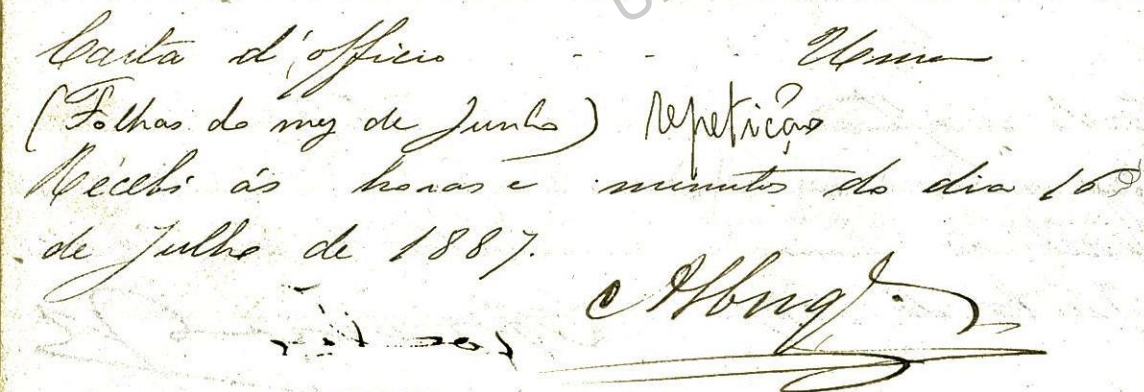 Carta d'officio - - Uma
(Folhas do mez de Junho) repetição
Recebi ás horas e minutos do dia 16
de Julho de 1887.